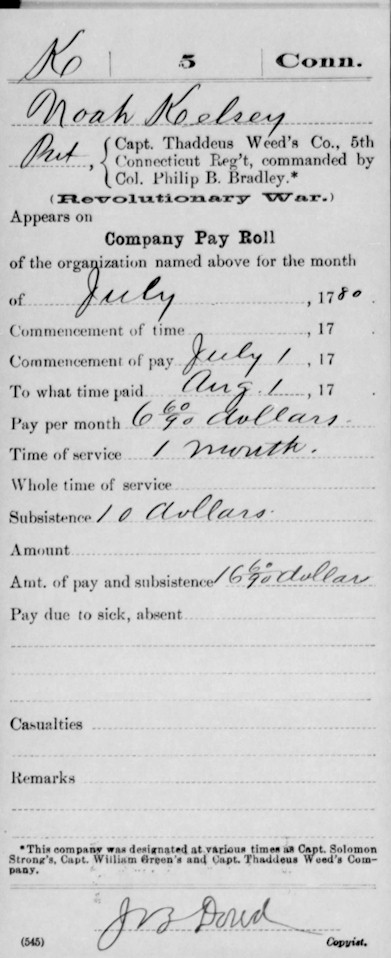 K 5 Conn.
Noah Kelsey
Pvt, { Capt. Thaddeus Weed's Co., 5th
Connecticut Reg't, commanded by
Col. Philip B. Bradley.*
(Revolutionary War.)
Appears on
Company Pay Roll
of the organization named above for the month
of July, 1780.
Commencement of time, 17
Commencement of pay July 1, 17
To what time paid Aug. 1, 17
Pay per month 6 60/90 dollars.
Time of service 1 month.
Whole time of service
Subsistence 10 dollars.
Amount
Amt. of pay and subsistence 16 60/90 dollar
Pay due to sick, absent
Casualties
Remarks
*This company was designated at various times as Capt. Solomon
Strong's, Capt. William Green's and Capt. Thaddeus Weed's Com-
pany.
J B Dowd
(545) Copyist.